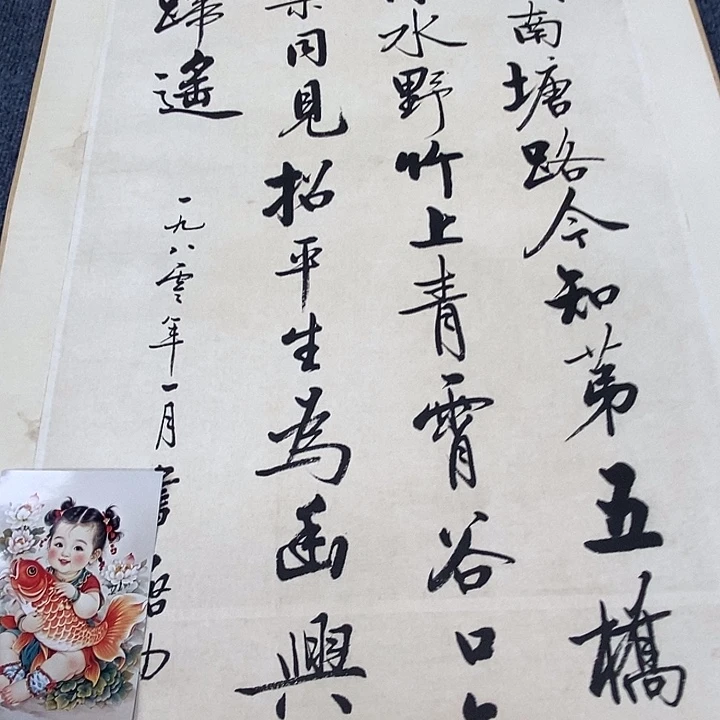 南塘路今知第五橋
水野竹上青霄谷口
同見招平生為幽興
蹄遙
一九八零年一月